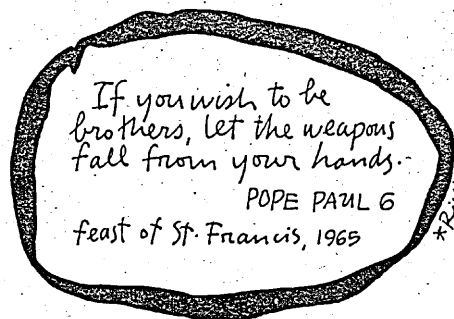 If you wish to be
brothers, let the weapons
fall from your hands.
POPE PAUL 6
feast of St. Francis, 1965